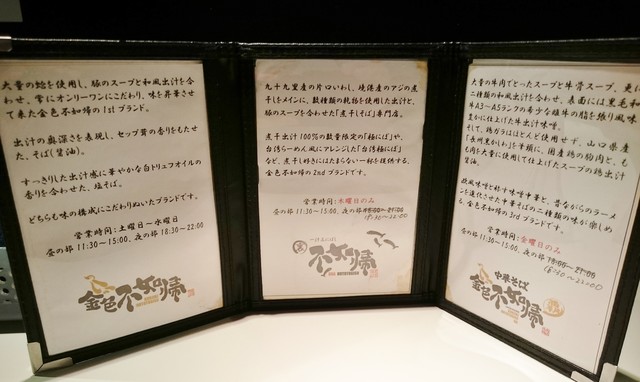 大量の蛤を使用し、豚のスープと和風出汁を合
わせ、常にオンリーワンにこだわり、味を昇華させ
て来た金色不如帰の1stブランド。
出汁の奥深さを表現し、セップ茸の香りをもたせ
た、そば(醤油)。
すっきりした出汁感に華やかな白トリュフオイルの
香りを合わせた、塩そば。
どちらも味の構成にこだわりぬいたブランドです。
営業時間:土曜日～水曜日
昼の部 11:30～15:00、夜の部 18:30～22:00
金色不如帰
九十九里産の片口いわし、境港産のアジの煮
干しをメインに、数種類の乾物を使用した出汁と、
豚のスープを合わせた「煮干しそば」専門店。
煮干出汁100%の数量限定の「極にぼ」や、
台湾らーめん風にアレンジした「台湾極にぼ」
など、煮干し好きにはたまらない一杯を提供する、
金色不如帰の2ndブランドです。
営業時間:木曜日のみ
昼の部 11:30～15:00、夜の部 18:00～21:00
18:30～22:00
不如帰
大量の牛肉でとったスープと牛骨スープ。更に
二種類の和風出汁を合わせ、表面には黒毛和
牛A3～A5ランクの希少な雌牛の脂を張り風味
豊かに仕上げた牛出汁味噌。
そして、鶏ガラはほとんど使用せず、山口県産
「長州黒かしわ」を筆頭に、国産鶏の胸肉と、も
も肉を大量に使用して仕上げたスープの鶏出汁
醤油。
営業時間:金曜日のみ
昼の部 11:30～15:00、夜の部 18:00～21:00
18:30～22:00
中華そば
金色不如帰